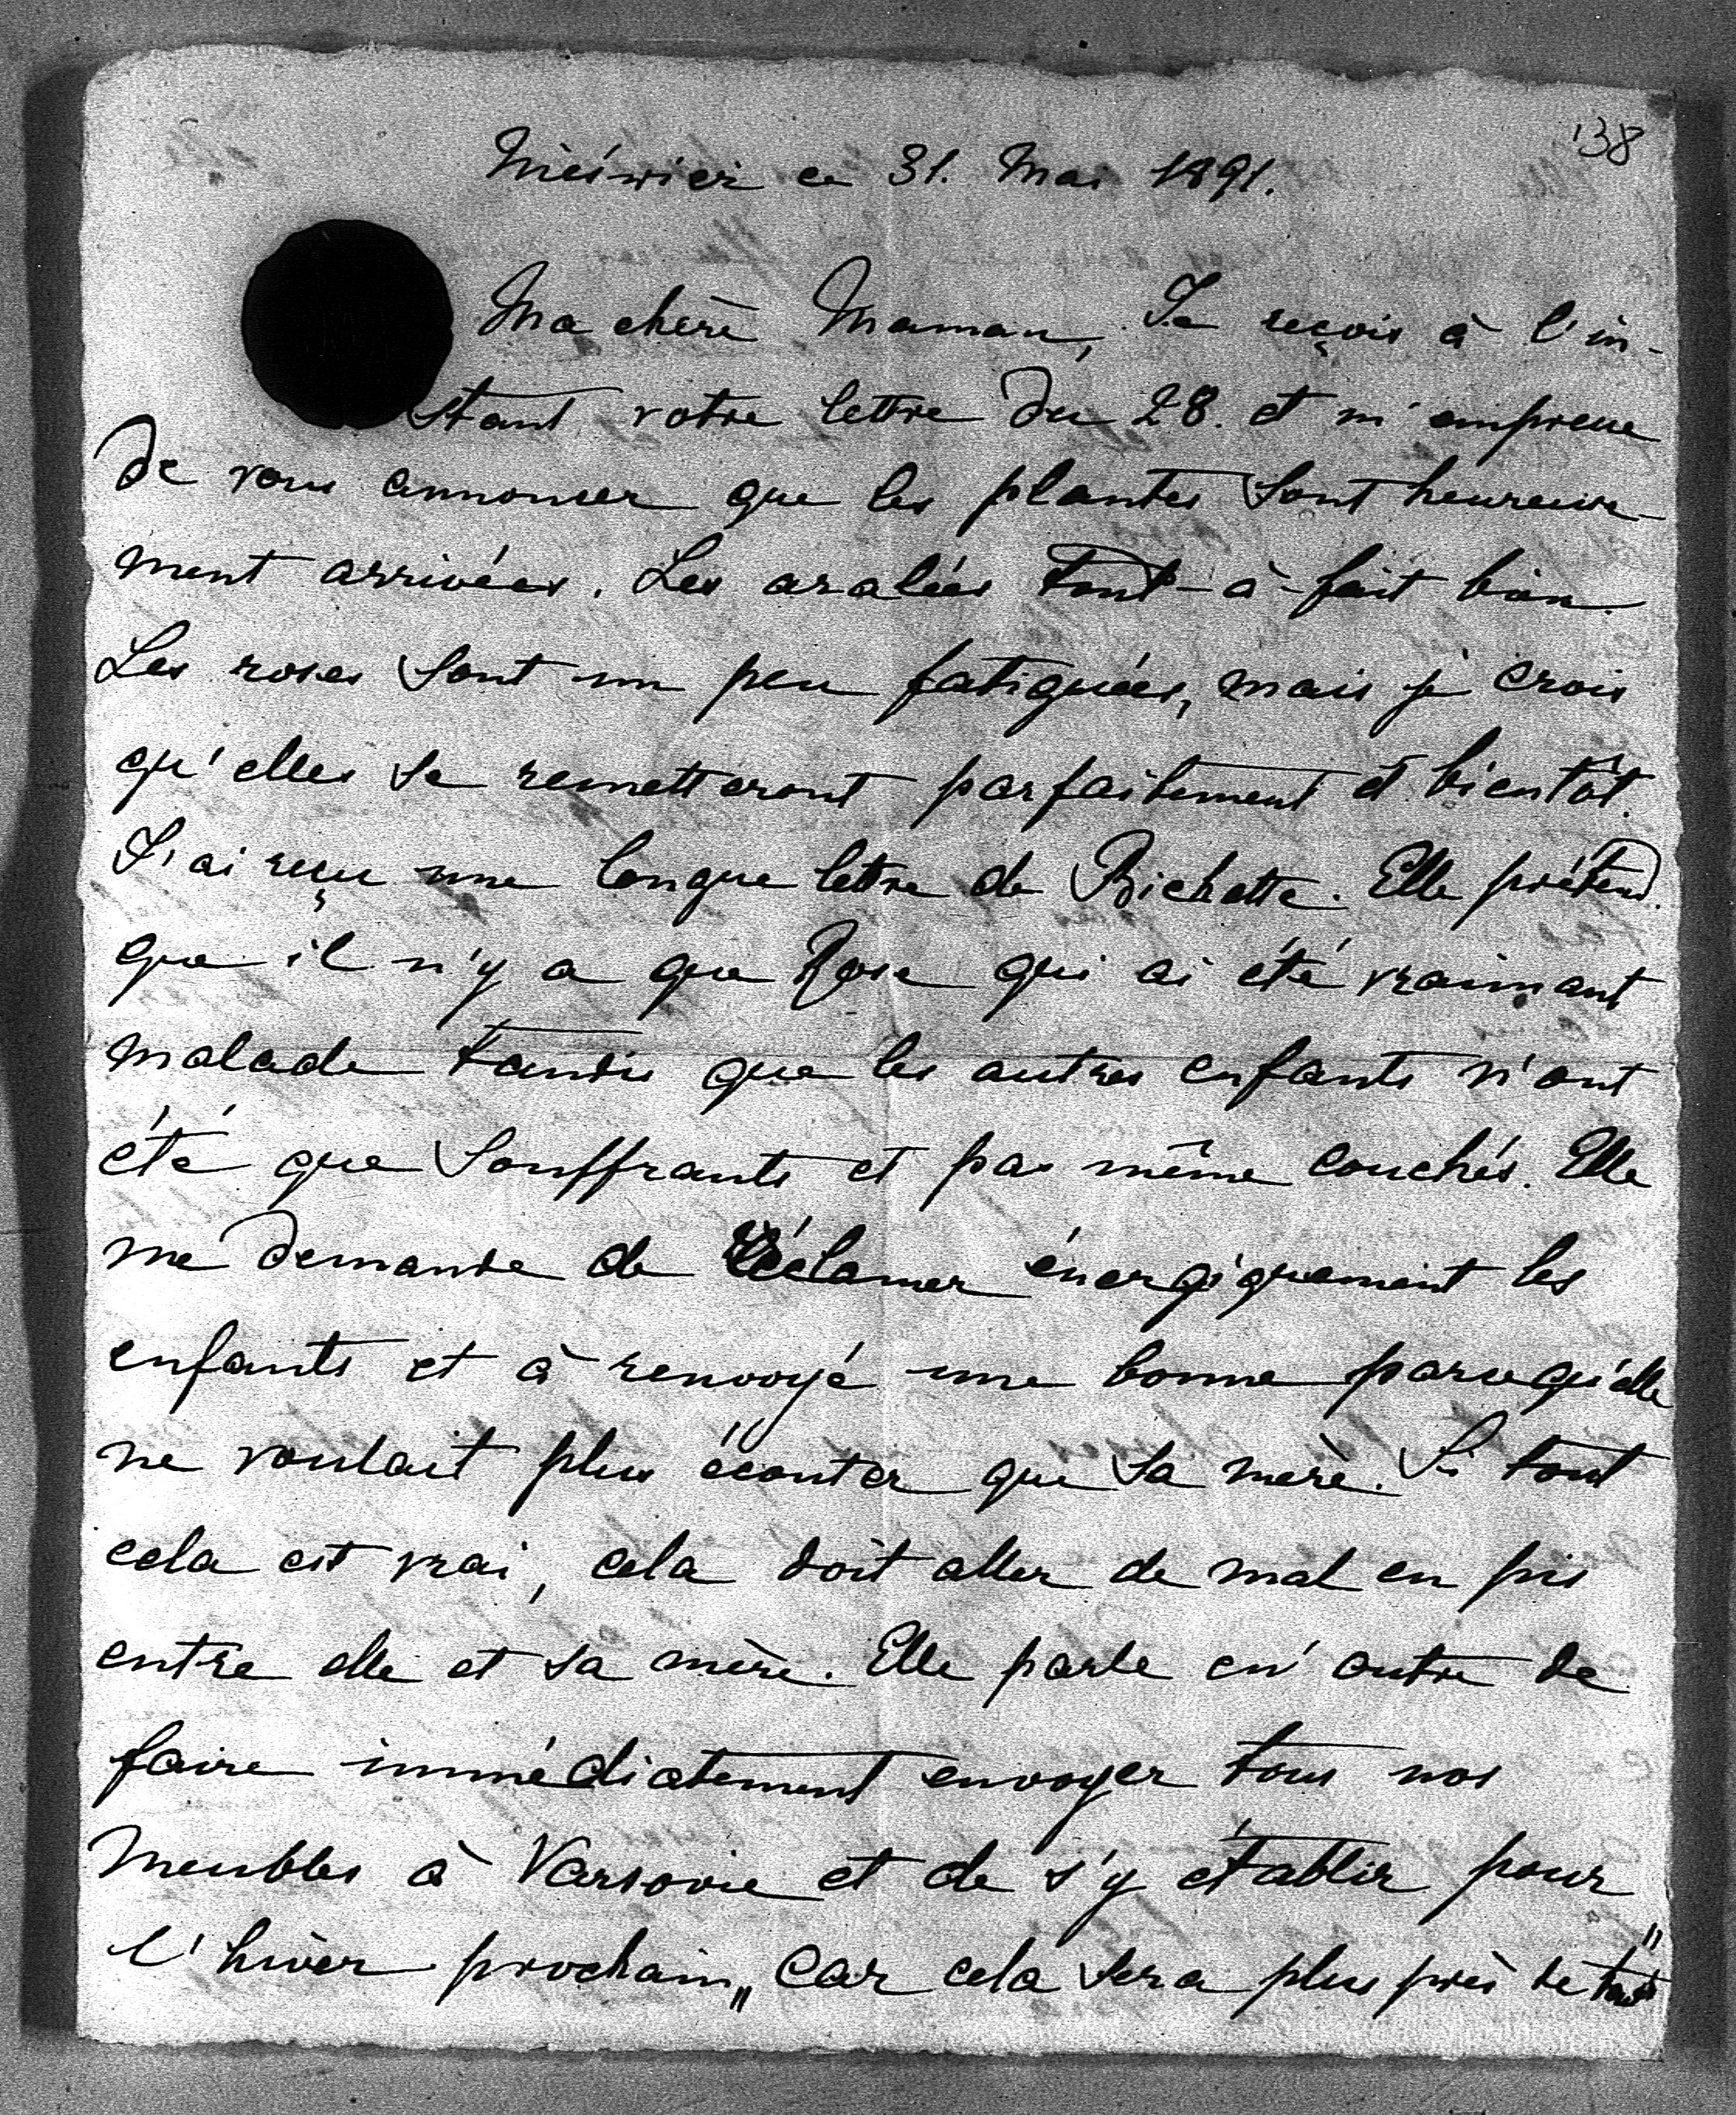 138
Nieśwież ce 31. Mai 1891.
Ma chère Maman, Je reçois à l'in-
stant votre lettre du 28. et m'empresse
de vous annoncer que les plantes sont heureuse-
ment arrivées. Les azalées tout-à-fait bien.
Les roses sont un peu fatiguées, mais je crois
qu'elles se remetteront parfaitement et bientôt.
J'ai reçu une longue lettre de Bichette. Elle prétend
que il n'y a que Rose qui ai été vraimant
malade tandis que les autres enfants n'ont
été que souffrants et pas même couchés. Elle
me demande de réclamer énergiquement les
enfants et à renvoyé une bonne parcequ'elle
ne voulait plus écouter que sa mère. Si tout
cela est vrai, cela doit aller de mal en pis
entre elle et sa mère. Elle parle en outre de
faire immédiatement envoyer tous nos
meubles à Varsovie et de s'y établir pour
l'hiver prochain „car cela sera plus près de tout"